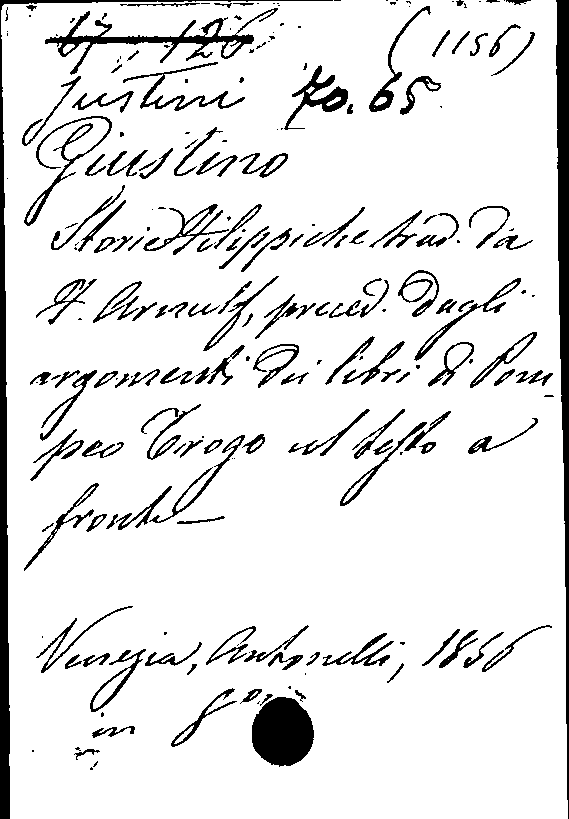 67. 126 (1156)
Justini 70.65
Giustino
Storie Filippiche trad. da
F. Arnulf, preced. dagli
argomenti dei libri di Pom
peo Trogo col testo a
fronte—
Venezia, Antonelli, 1856
in 8°